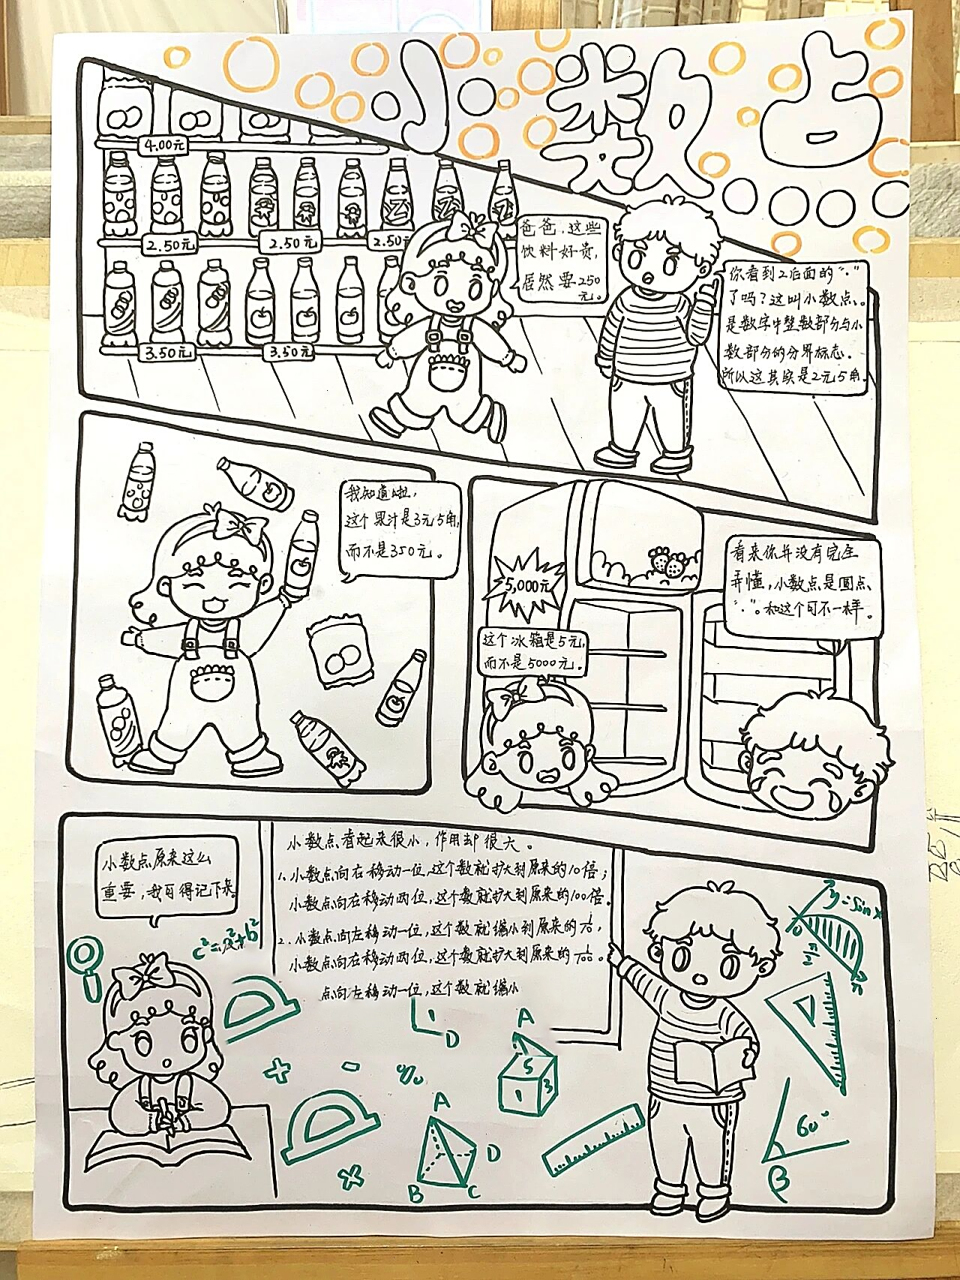 小数点
4.00元
2.50元
2.50元
2.50
3.50元
3.50元
爸爸，这些
饮料好贵，
居然要250
元。
你看到2后面的“.”
了吗？这叫小数点、
是数字中整数部分与小
数部分的分界标志。
所以这其实是2元5角。
我知道啦，
这个果汁是3元5角，
而不是350元。
5,000元
这个冰箱是5元，
而不是5000元。
看来你并没有完全
弄懂，小数点是圆点、
“.”。和这个可不一样。
小数点原来这么
重要，我可得记下来。
小数点看起来很小，作用却很大。
1、小数点向右移动一位，这个数就扩大到原来的10倍；
小数点向右移动两位，这个数就扩大到原来的100倍。
2、小数点向左移动一位，这个数就缩小到原来的1/10，
小数点向右移动两位，这个数就扩大到原来的1/100。
点向左移动一位，这个数就缩小
c²=a²+b²
y=sinx
0
π/2
D
A
5
1
3
+
-
%
×
A
B
C
D
60°
β